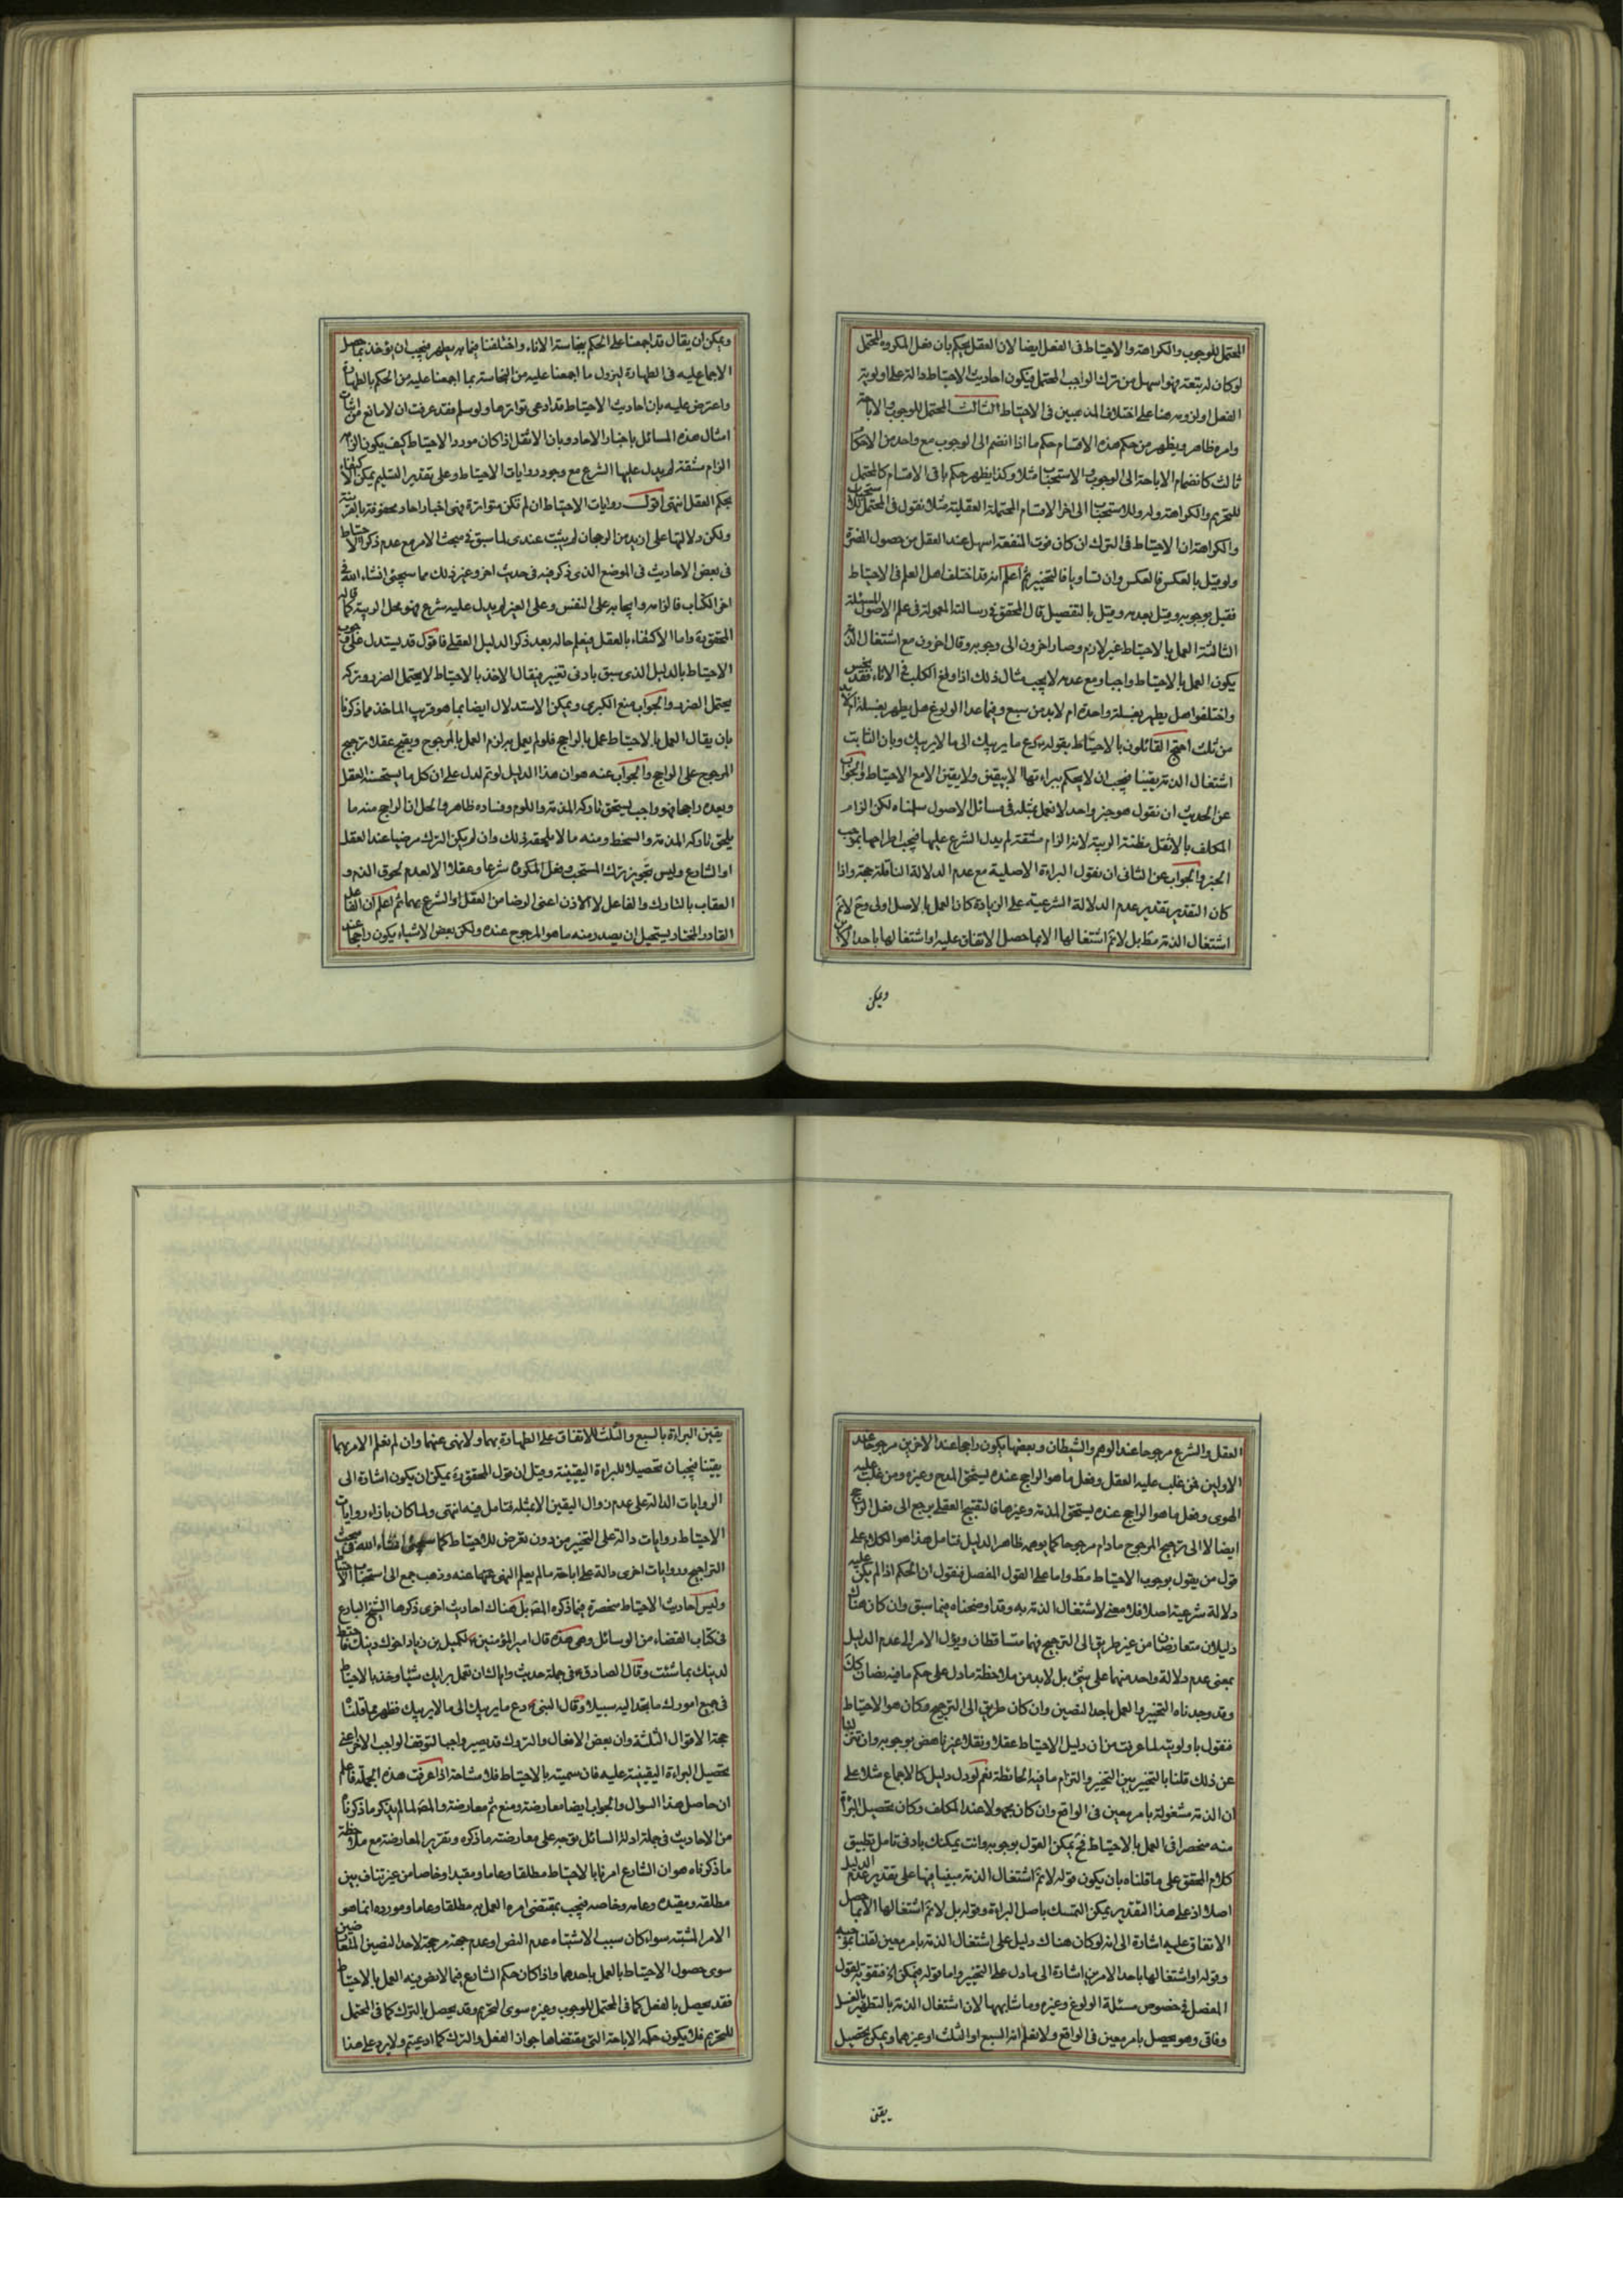 المحتمل للوجوب والكراهة والاحتياط فى الفعل ايضا لان العقل يحكم بان فعل المكروه المحتمل
لو كان له تبعة فهو اسهل من ترك الواجب المحتمل فيكون احاديث الاحتياط دالة على اولوية
الفعل او لزومه هنا على اختلاف المذهبين فى الاحتياط الثالث المحتمل للوجوب والاباحة
وامره ظاهر ويظهر من حكم هذه الاقسام حكم ما اذا انضم الى الوجوب مع واحد من الاحكام
ثالث كانضمام الاباحة الى الوجوب والاستحباب مثلا وكذا يظهر حكم باقى الاقسام كالمحتمل
للتحريم والكراهة وله وللاستحباب الى اخر الاقسام المحتملة العقلية مثلا نقول فى المحتمل للاستحباب
والكراهة ان الاحتياط فى الترك ان كان فوت المنفعة اسهل عند العقل من حصول المضرة
ولو قيل بالعكس فالعكس وان تساويا فالتخيير ثم اعلم انه قد اختلف اهل العلم فى الاحتياط
فقيل بوجوبه وقيل بعدمه وقيل بالتفصيل قال المحقق فى رسالته المعمولة فى علم الاصول المسئلة
الثالثة العمل بالاحتياط غير لازم وصار اخرون الى وجوبه وقال اخرون مع اشتغال الذمة
يكون العمل بالاحتياط واجبا ومع عدمه لا يجب مثال ذلك اذا ولغ الكلب فى الاناء فقد نجس
واختلفوا هل يطهر بغسلة واحدة ام لابد من سبع وفيما عدا الولوغ هل يطهر بغسلة ام لابد
من ثلث احتج القائلون بالاحتياط بقوله دع ما يريبك الى ما لا يريبك وبان الثابت
اشتغال الذمة يقينا فيجب ان لا يحكم ببراءتها الا بيقين ولا يقين الا مع الاحتياط والجواب
عن الحديث ان نقول هو خبر واحد لا نعمل بمثله فى مسائل الاصول سلمناه لكن الزام
المكلف بالاثقل مظنة الريبة لانه الزام مشقة لم يدل الشرع عليها فيجب اطراحها بموجب
الخبر والجواب عن الثانى ان نقول البراءة الاصلية مع عدم الدلالة الناقلة حجة واذا
كان التقدير تقدير عدم الدلالة الشرعية على الزيادة كان العمل بالاصل اولى وح لا نم
اشتغال الذمة مط بل لا نم اشتغالها الا بما حصل الاتفاق عليه او اشتغالها باحد الامرين
ويمكن
ويمكن ان يقال قد اجمعنا على الحكم بنجاسة الاناء واختلفنا فيما به يطهر فيجب ان يؤخذ بما حصل
الاجماع عليه فى الطهارة ليزول ما اجمعنا عليه من النجاسة بما اجمعنا عليه من الحكم بالطهارة
واعترض عليه بان احاديث الاحتياط قد ادعى تواترها ولو سلم فقد عرفت ان لا مانع من اثبات
امثال هذه المسائل باخبار الاحاد وبان الاثقل اذا كان مورد الاحتياط كيف يكون الزامه
الزام مشقة لم يدل عليها الشرع مع وجود روايات الاحتياط وعلى تقدير التسليم يمكن الاكتفاء
بحكم العقل انتهى اقول روايات الاحتياط ان لم تكن متواترة فهى اخبار احاد محفوفة بالقرينة
ولكن دلالتها على ازيد من الرجحان لم يثبت عندى لما سبق فى مبحث الامر مع عدم ذكر الاحتياط
فى بعض الاحاديث فى الموضع الذى ذكر فيه فى حديث اخر وغير ذلك مما سيجئ انشاء الله فى
اخر الكتاب فالزامه وايجابه على النفس وعلى الغير لم يدل عليه شرع فهو محل الريبة كما قاله
المحقق ره واما الاكتفاء بالعقل فيعلم حاله بعد ذكر الدليل العقلى فاقول قد يستدل على وجوب
الاحتياط بالدليل الذى سبق بادنى تغيير فيقال الاخذ بالاحتياط لا يحتمل الضرر وتركه
يحتمل الضرر والجواب منع الكبرى ويمكن الاستدلال ايضا بما هو قريب الماخذ مما ذكرنا
بان يقال العمل بالاحتياط عمل بالراجح فلو لم يعمل به لزم العمل بالمرجوح ويقبح عقلا ترجيح
المرجوح على الراجح والجواب عنه هو ان هذا الدليل لو تم لدل على ان كل ما يستحسنه العقل
ويعده راجحا فهو واجب يستحق تاركه المذمة واللوم وفساده ظاهر والحل ان الراجح منه ما
يلحق تاركه المذمة والسخط ومنه ما لا يلحقه ذلك وان لم يكن الترك مرضيا عند العقل
او الشارع وليس تجويز ترك المستحب وفعل المكروه شرعا وعقلا الا لعدم لحوق الذم و
العقاب بالتارك والفاعل لا الاذن اعنى الرضا من العقل او الشرع بهما ثم اعلم ان الفاعل
القادر المختار يستحيل ان يصدر منه ما هو المرجوح عنده ولكن بعض الاشياء يكون راجحا عند
العقل والشرع مرجوحا عند الوهم والشيطان وبعضها يكون راجحا عند الاخرين مرجوحا عند
الاولين فمن غلب عليه العقل وفعل ما هو الراجح عنده يستحق المدح وغيره ومن غلب عليه
الهوى وفعل ما هو الراجح عنده يستحق المذمة وغيرها فالتقبيح العقلى يرجع الى فعل الراجح
ايضا لا الى ترجيح المرجوح مادام مرجوحا كما يوهمه ظاهر الدليل فتامل هذا هو الكلام على
قول من يقول بوجوب الاحتياط مط واما على القول المفصل فنقول ان الحكم اذا لم يكن عليه
دلالة شرعية اصلا فلا معنى لاشتغال الذمة به وقد اوضحناه فيما سبق وان كان هناك
دليلان متعارضان من غير طريق الى الترجيح فهما متساقطان ويؤل الامر الى عدم الدليل
بمعنى عدم دلالة واحد منهما على شئ بل لابد من ملاحظة ما دل على حكم ما فيه نصان كك
وقد وجدناه التخيير والعمل باحد النصين وان كان طريق الى الترجيح وكان هو الاحتياط
فنقول باولويته لما عرفت من ان دليل الاحتياط عقلا ونقلا غير ناهض بوجوبه وان تنزلنا
عن ذلك قلنا بالتخيير بين التخيير والتزام ما فيه الحائطة نعم لو دل دليل كالاجماع مثلا على
ان الذمة مشغولة بامر معين فى الواقع وان كان مجهولا عند المكلف وكان تحصيل البراءة
منه منحصرا فى العمل بالاحتياط فح يمكن القول بوجوبه وانت يمكنك بادنى تامل تطبيق
كلام المحقق على ما قلناه بان يكون قوله لا نم اشتغال الذمة مبينا فيها على تقدير عدم الدليل
اصلا اذ على هذا التقدير يمكن التمسك باصل البراءة وقوله بل لا نم اشتغالها الا بما حصل
الاتفاق عليه اشارة الى انه لو كان هناك دليل على اشتغال الذمة بامر معين لقلنا بموجبه
وقوله او اشتغالها باحد الامرين اشارة الى ما دل على التخيير واما قوله فيمكن اه فتقوية لقول
المفصل فى خصوص مسئلة الولوغ وغيره وما شابهها لان اشتغال الذمة بالتطهير بالغسل
وفاقى وهو يحصل بامر معين فى الواقع ولا نعلم انه السبع او الثلث او غيرهما ويمكن تحصيل
يقين
يقين البراءة بالسبع والثلث للاتفاق على الطهارة بهما ولا نهى عنهما وان لم نعلم الامر بهما
يقينا فيجبان تحصيلا للبراءة اليقينية وقيل ان قول المحقق ره يمكن ان يكون اشارة الى
الروايات الدالة على عدم زوال اليقين الا بمثله فتامل فيه انتهى ولما كان بازاء روايات
الاحتياط روايات دالة على التخيير من دون تعرض للاحتياط كما سيجئ انشاء الله فى مبحث
التراجيح وروايات اخرى دالة على اباحة ما لم يعلم النهى عنها عنه وذهب جمع الى استحباب الاحتياط
وليس احاديث الاحتياط منحصرة فيما ذكره المص بل هناك احاديث اخرى ذكرها الشيخ البارع
فى كتاب القضاء من الوسائل وهى هذه قال امير المؤمنين ع لكميل بن زياد اخوك دينك فاحتط
لدينك بما شئت وقال الصادق ع فى جملة حديث واياك ان تعمل برايك شيئا وخذ بالاحتياط
فى جميع امورك ما تجد اليه سبيلا وقال النبى ص دع ما يريبك الى ما لا يريبك فظهر مما قلنا
حجة الاقوال الثلثة وان بعض الافعال والتروك قد يصير واجبا لتوقف الواجب الاخر اعنى
تحصيل البراءة اليقينية عليه فان سميته بالاحتياط فلا مشاحة اذا عرفت هذه الجملة فاعلم
ان حاصل هذا السوال والجواب ايضا معارضة ومنع ثم معارضة والمص لما لم يذكر ما ذكرنا
من الاحاديث فى جملة ادلة السائل توجه على معارضته ما ذكره وتقرير المعارضة مع ملاحظة
ما ذكرناه هو ان الشارع امرنا بالاحتياط مطلقا وعاما ومقيدا وخاصا من غير تناف بين
مطلقه ومقيده وعامه وخاصه فيجب بمقتضى امره العمل به مطلقا وعاما ومورده انما هو
الامر المشتبه سواء كان سبب الاشتباه عدم النص او عدم جهة مرجحة لاحد النصين المتعارضين
سوى حصول الاحتياط بالعمل باحدهما واذا كان حكم الشارع فيما لا نص فيه العمل بالاحتياط
فقد يحصل بالفعل كما فى المحتمل للوجوب وغيره سوى التحريم وقد يحصل بالترك كما فى المحتمل
للتحريم فلا يكون حكمه الاباحة التى مقتضاها جواز الفعل والترك كما ادعيتم ولا يرد على هذا